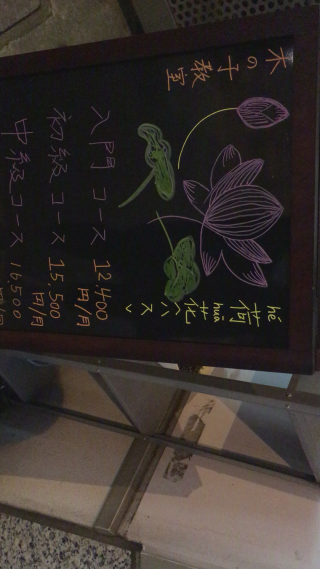 木の子教室
hé huā
荷花
ハス
入門コース 12,400円/月
初級コース 15,500円/月
中級コース 16500円/月